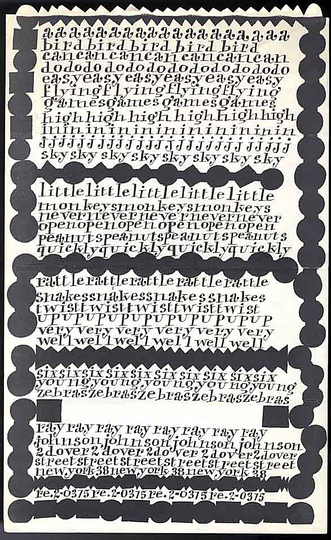 aaaaaaaaaaaaa
birdbirdbird bird bird
cancancancan cancancan
dodododododododododo
easyeasyeasyeasyeasyeasy
flyingflyingflyingflying
gamesgames games games
highhigh high highhighhigh
inininininininininin
jjjjjjjjjjjjjjjjjj
skysky skysky skysky skysky
littlelittlelittlelittlelittle
monkeysmonkeysmonkeys
nevernevernevernevernever
openopenopenopenopenopen
peanutspeanutspeanutspeanuts
quicklyquicklyquicklyquickly
rattlerattlerattlerattlerattle
snakessnakessnakessnakes
twisttwisttwisttwisttwist
upupupupupupupupupup
veryveryveryvery very very
wellwellwellwellwell well
sixsixsixsixsixsixsixsix
youngyoungyoungyoungyoung
zebraszebraszebraszebras
ray ray ray ray ray ray ray ray
johnsonjohnsonjohnsonjohnson
2dover2dover2dover2dover2dover
streetstreetstreetstreetstreet
newyork38newyork38newyork38
re.2-0375 re.2-0375 re.2-0375 re.2-0375